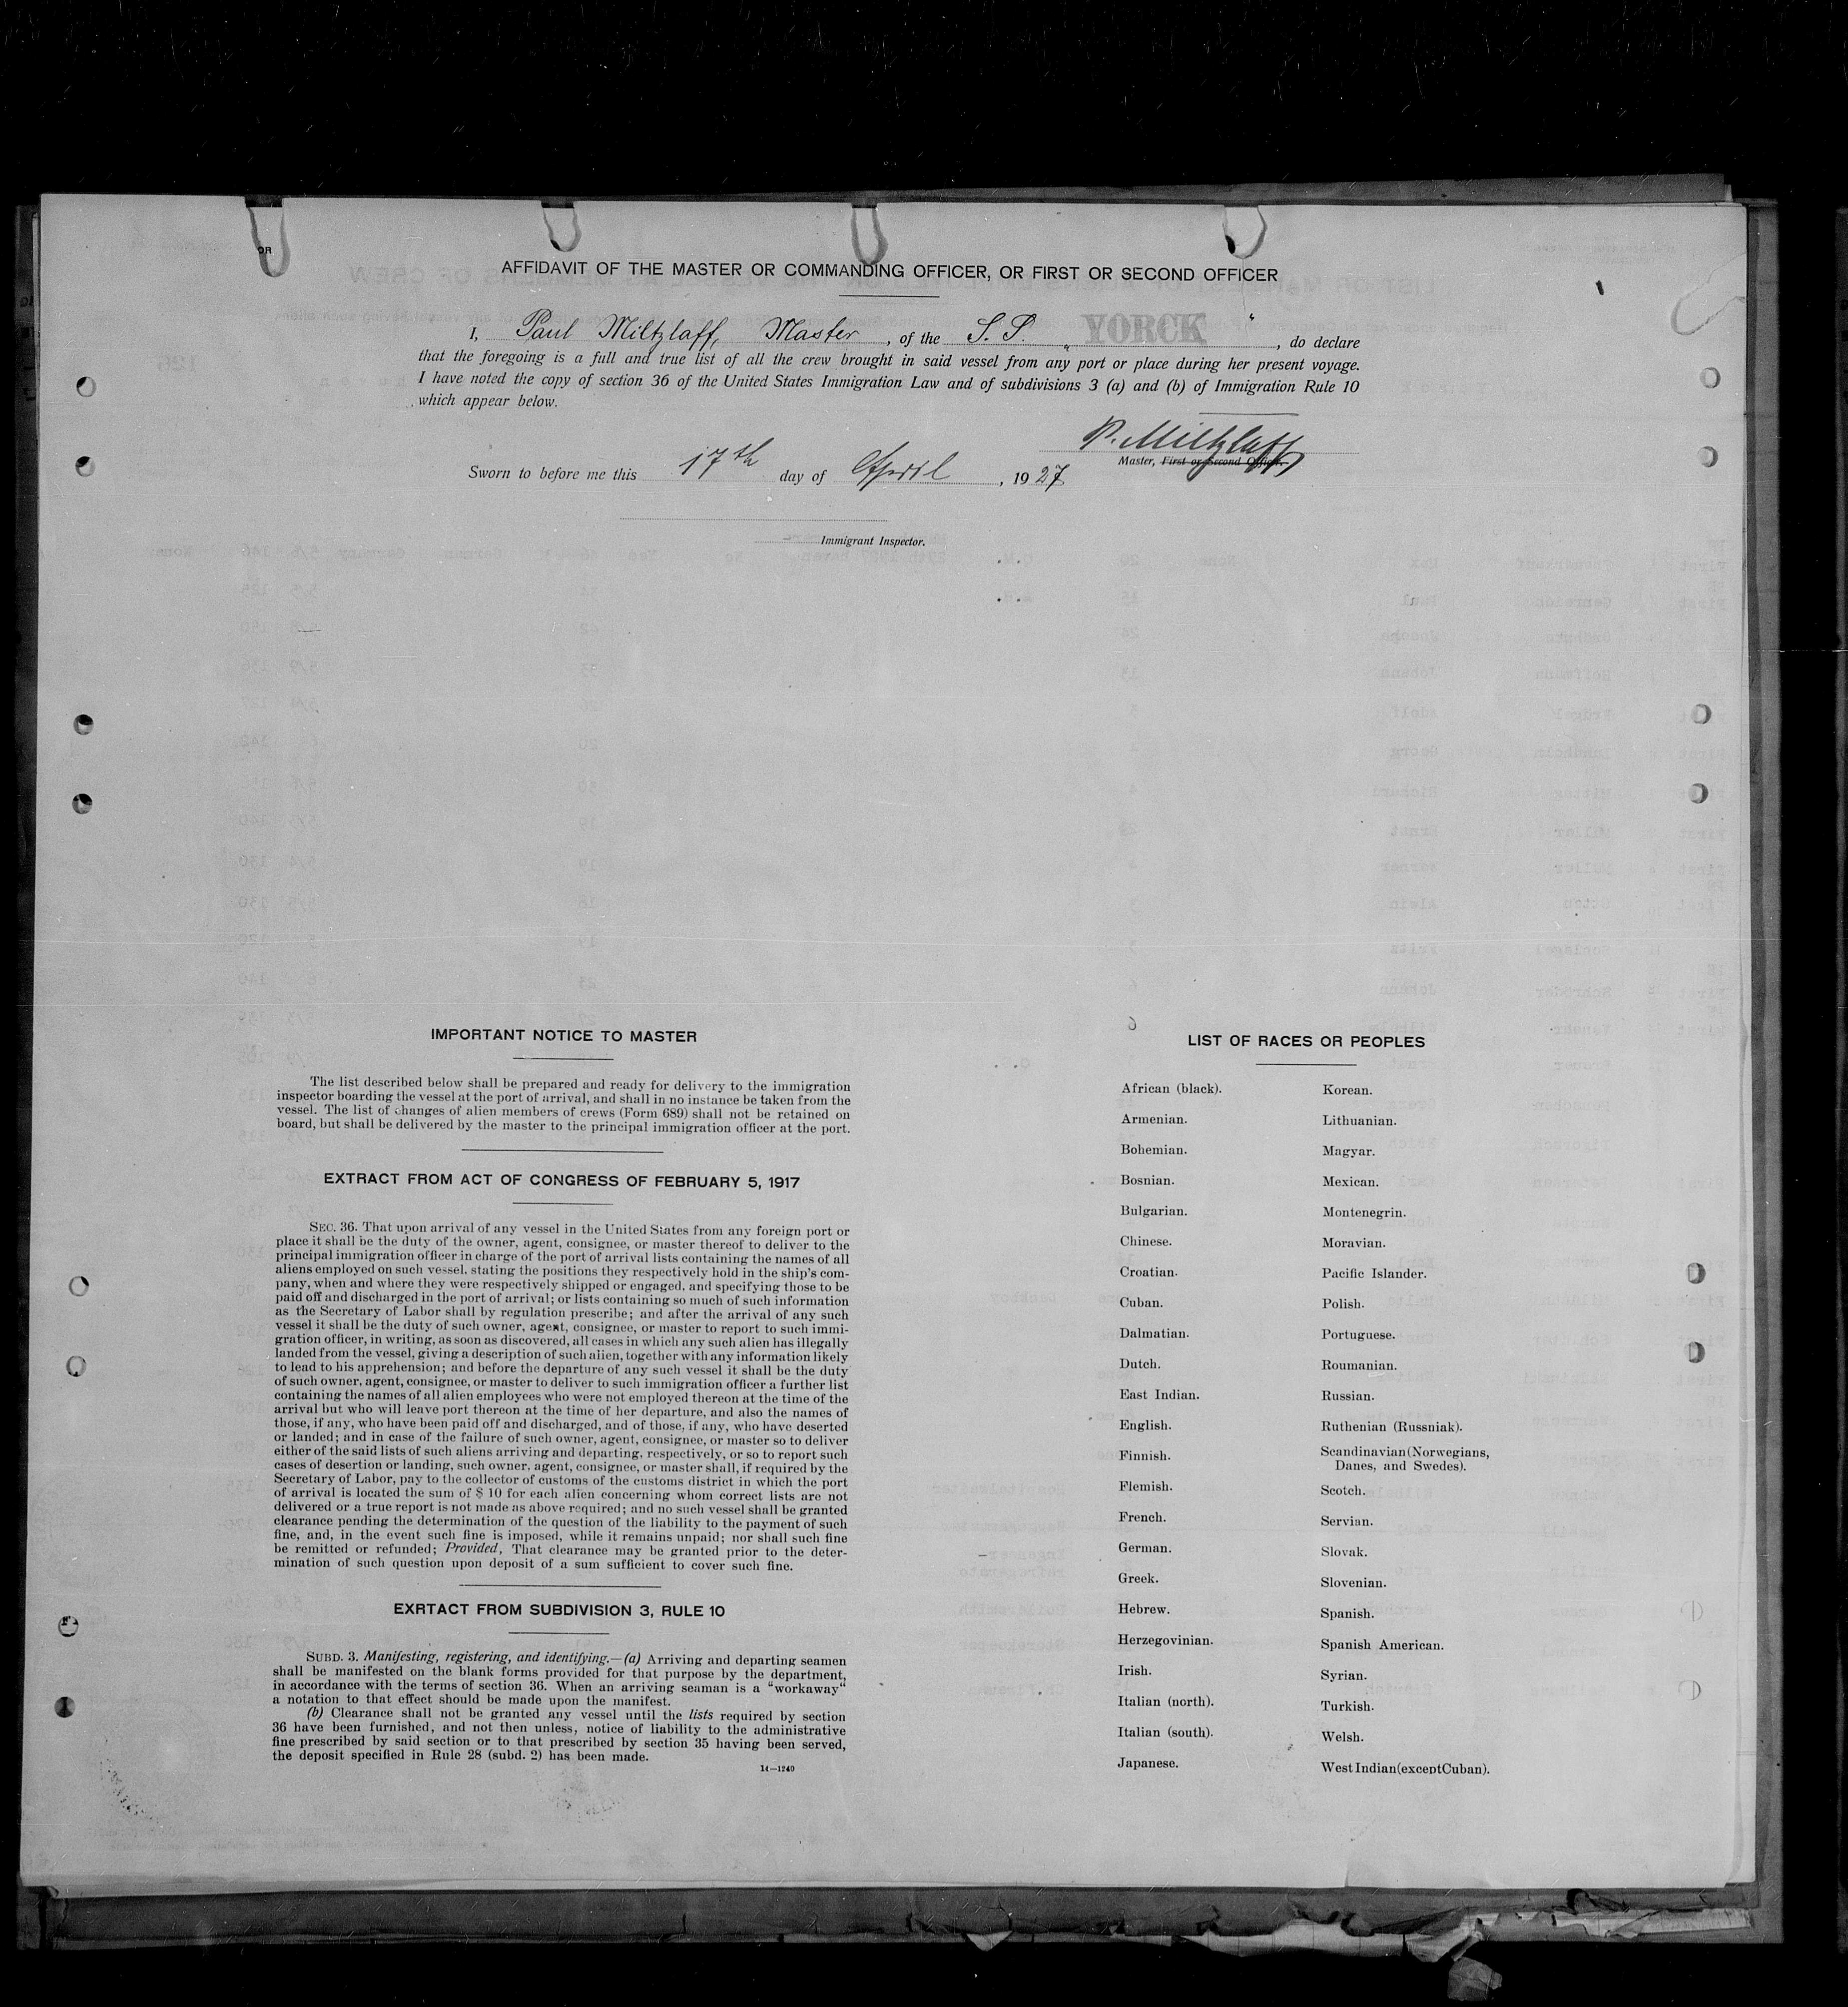 OR
AFFIDAVIT OF THE MASTER OR COMMANDING OFFICER, OR FIRST OR SECOND OFFICER
I, Paul Miltzlaff, Master, of the S. S. „YORCK", do declare
that the foregoing is a full and true list of all the crew brought in said vessel from any port or place during her present voyage.
I have noted the copy of section 36 of the United States Immigration Law and of subdivisions 3 (a) and (b) of Immigration Rule 10
which appear below.
P. Miltzlaff
Master, First or Second Officer.
Sworn to before me this 17th day of April, 1927
Immigrant Inspector.
IMPORTANT NOTICE TO MASTER
The list described below shall be prepared and ready for delivery to the immigration
inspector boarding the vessel at the port of arrival, and shall in no instance be taken from the
vessel. The list of changes of alien members of crews (Form 689) shall not be retained on
board, but shall be delivered by the master to the principal immigration officer at the port.
EXTRACT FROM ACT OF CONGRESS OF FEBRUARY 5, 1917
SEC. 36. That upon arrival of any vessel in the United States from any foreign port or
place it shall be the duty of the owner, agent, consignee, or master thereof to deliver to the
principal immigration officer in charge of the port of arrival lists containing the names of all
aliens employed on such vessel, stating the positions they respectively hold in the ship's com-
pany, when and where they were respectively shipped or engaged, and specifying those to be
paid off and discharged in the port of arrival; or lists containing so much of such information
as the Secretary of Labor shall by regulation prescribe; and after the arrival of any such
vessel it shall be the duty of such owner, agent, consignee, or master to report to such immi-
gration officer, in writing, as soon as discovered, all cases in which any such alien has illegally
landed from the vessel, giving a description of such alien, together with any information likely
to lead to his apprehension; and before the departure of any such vessel it shall be the duty
of such owner, agent, consignee, or master to deliver to such immigration officer a further list
containing the names of all alien employees who were not employed thereon at the time of the
arrival but who will leave port thereon at the time of her departure, and also the names of
those, if any, who have been paid off and discharged, and of those, if any, who have deserted
or landed; and in case of the failure of such owner, agent, consignee, or master so to deliver
either of the said lists of such aliens arriving and departing, respectively, or so to report such
cases of desertion or landing, such owner, agent, consignee, or master shall, if required by the
Secretary of Labor, pay to the collector of customs of the customs district in which the port
of arrival is located the sum of $ 10 for each alien concerning whom correct lists are not
delivered or a true report is not made as above required; and no such vessel shall be granted
clearance pending the determination of the question of the liability to the payment of such
fine, and, in the event such fine is imposed, while it remains unpaid; nor shall such fine
be remitted or refunded; Provided, That clearance may be granted prior to the deter-
mination of such question upon deposit of a sum sufficient to cover such fine.
EXRTACT FROM SUBDIVISION 3, RULE 10
SUBD. 3. Manifesting, registering, and identifying.—(a) Arriving and departing seamen
shall be manifested on the blank forms provided for that purpose by the department,
in accordance with the terms of section 36. When an arriving seaman is a "workaway"
a notation to that effect should be made upon the manifest.
(b) Clearance shall not be granted any vessel until the lists required by section
36 have been furnished, and not then unless, notice of liability to the administrative
fine prescribed by said section or to that prescribed by section 35 having been served,
the deposit specified in Rule 28 (subd. 2) has been made.
14—1240
LIST OF RACES OR PEOPLES
African (black).
Armenian.
Bohemian.
Bosnian.
Bulgarian.
Chinese.
Croatian.
Cuban.
Dalmatian.
Dutch.
East Indian.
English.
Finnish.
Flemish.
French.
German.
Greek.
Hebrew.
Herzegovinian.
Irish.
Italian (north).
Italian (south).
Japanese.
Korean.
Lithuanian.
Magyar.
Mexican.
Montenegrin.
Moravian.
Pacific Islander.
Polish.
Portuguese.
Roumanian.
Russian.
Ruthenian (Russniak).
Scandinavian (Norwegians,
Danes, and Swedes).
Scotch.
Servian.
Slovak.
Slovenian.
Spanish.
Spanish American.
Syrian.
Turkish.
Welsh.
West Indian (except Cuban).